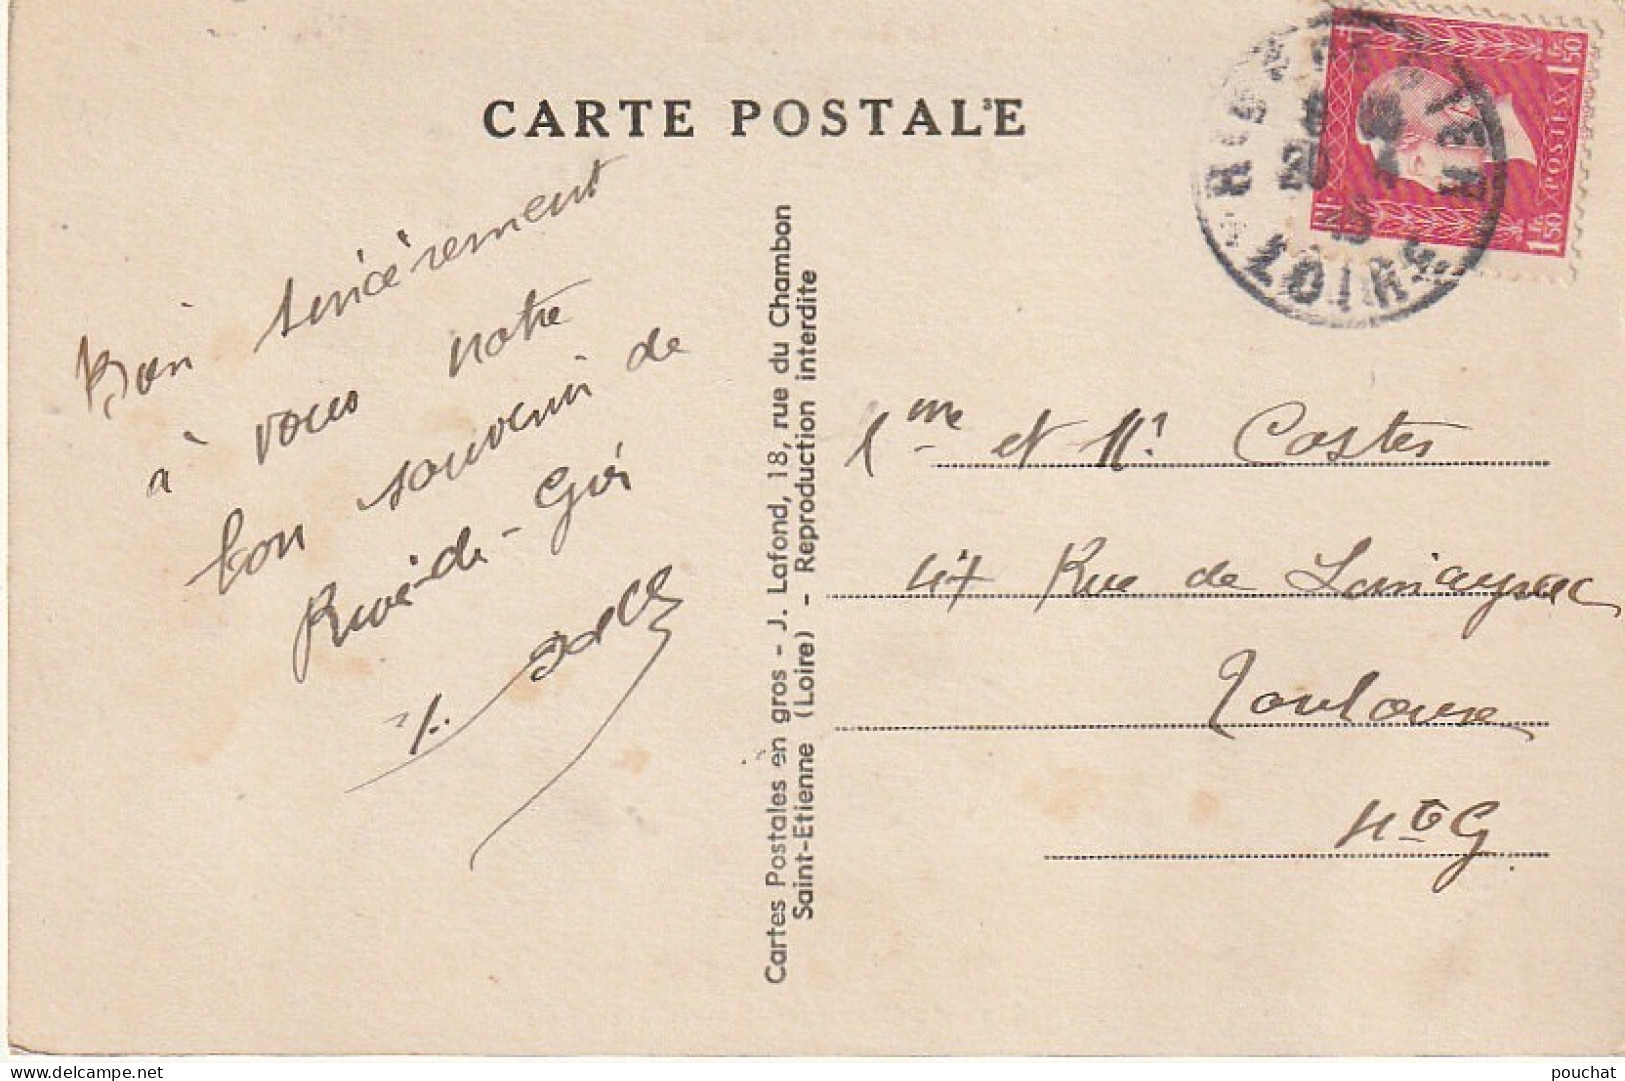 CARTE POSTALE
Bien sincèrement
à vous notre
bon souvenir de
Rive-de-Gier
Cartes Postales en gros - J. Lafond, 18, rue du Chambon
Saint-Etienne (Loire) - Reproduction interdite
1F50
POSTES
1F50
RF
LOIRE
Mme et Mr Costes
47 Rue de
Toulouse
Hte G
delcampe.net
pouchat